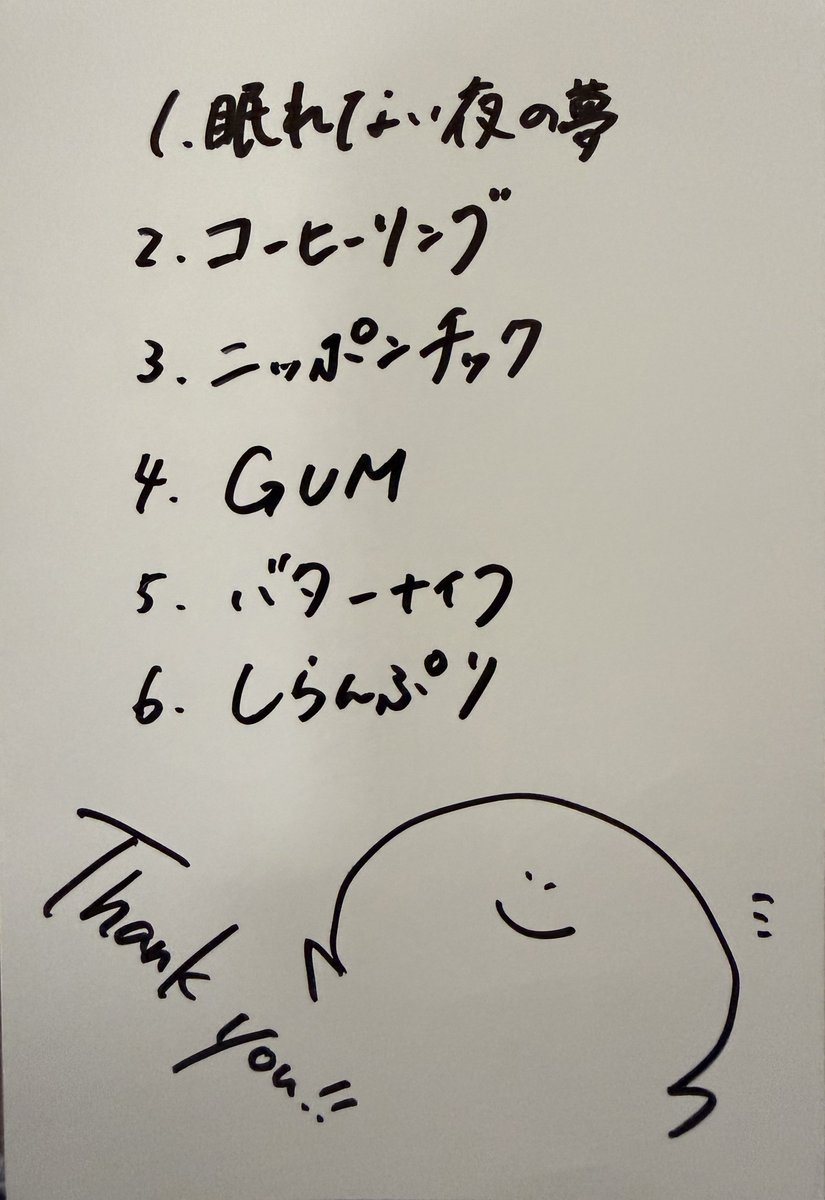 1. 眠れない夜の夢
2. コーヒーリング
3. ニッポンチック
4. GUM
5. バターナイフ
6. しらんぷり
Thank you!!